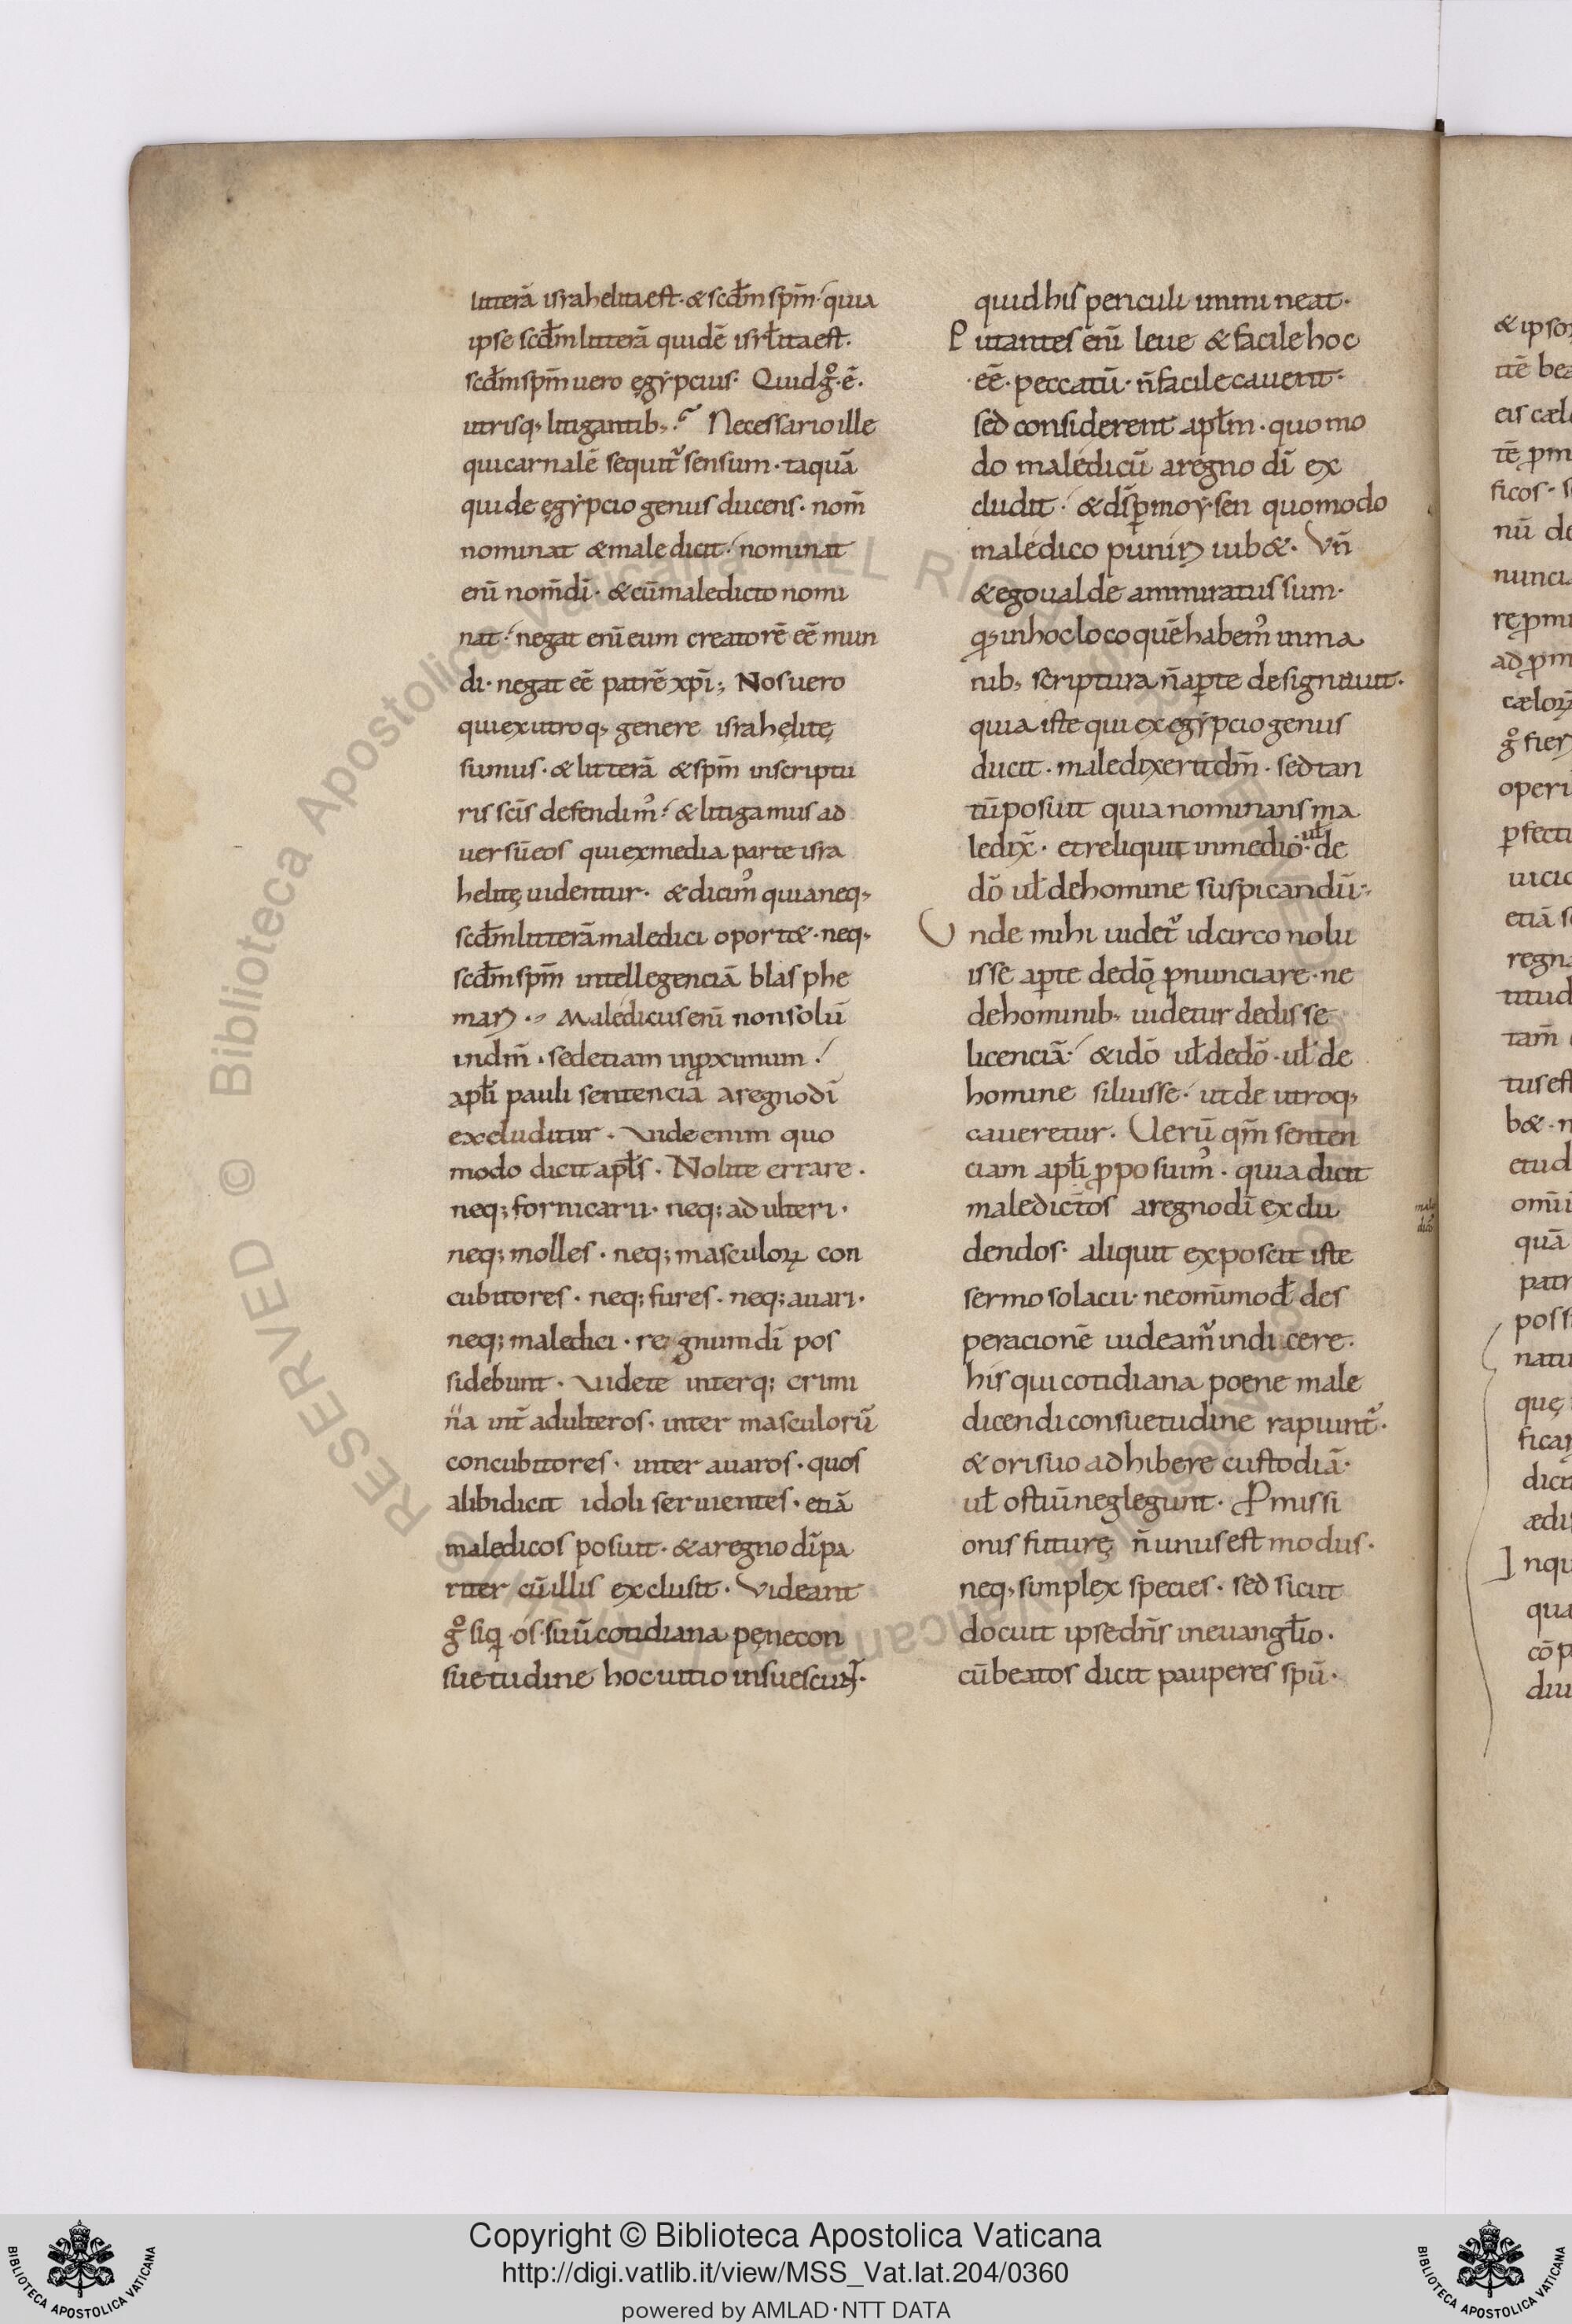 litterā israhelita est· & scd̄m sp̄m· quia
ipse scd̄m litterā quidē isrl̄ita est·
scd̄m sp̄m uero ęgẏpcius· Quid gͦ·ē·
utrisq; litigantib;·? Necessario ille
qui carnalē sequit᷒ sensum· taquā
qui de ęgẏpcio genus ducens· nom̄
nominat & maledicit· nominat
enī nom̄ dī· & cū maledicto nomi
nat· negat enī eum creatorē eē mun
di· negat eē patrē xp̄i; Nos uero
qui ex utroq; genere israhęlitę
sumus· & litterā & sp̄m in scriptu
ris sc̄is defendim᷒· & litigamus ad
uersū eos qui ex media parte isra
helitę uidentur· & dicim᷒ quia neq;
scd̄m litterā maledici oport&· neq;
scd̄m sp̄m intellegenciā blasphe
marꝫ· Maledicus enī non solū
in dm̄· sed etiam in ꝓximum·
apl̄i pauli sentencia a regno dī
excluditur· Vide enim quo
modo dicit apl̄s· Nolite errare·
neq; fornicarii· neq; adulteri·
neq; molles· neq; masculoꝝ con
cubitores· neq; fures· neq; auari·
neq; maledici· re gnum dī pos
sidebunt· Videte inter q; crimi
na int̄ adulteros· inter masculorū
concubitores· inter auaros· quos
alibi dicit idoli seruientes· etiā
maledicos posuit· & a regno dī pa
riter cū illis exclusit· Videant
gͦ siq· os· suū cotidiana pęne con
suetudine hoc uitio insuescunt·
quid his periculi immineat·
Putantes enī leue & facile hoc
·eē· peccatū· n̄ facile cauent·
sed considerent apl̄m· quomo
do maledicū a regno dī ex
cludit· & ds̄ ꝑ moẏsen quomodo
maledico punirꝫ iub&· Vn̄
& ego ualde ammiratus sum·
q; in hoc loco quē habem᷒ in ma
nib; scriptura n̄ aꝑte designauit·
quia iste qui ex egẏpcio genus
ducit· maledixerit dm̄· sed tan
tū posuit quia nominans ma
ledix̄· et reliquit in medio ·ul̄· de
dō ul̄ de homine suspicandū·
Vnde mihi uidet᷒ idcirco nolu
isse aꝑte de dō ꝓnunciare· ne
de hominib; uidetur dedisse
licenciā· & idō ul̄ de dō· ul̄ de
homine siluisse· ut de utroq;
caueretur· Uerū qm̄ senten
ciam apl̄i ꝓposuim᷒· quia dicit
maledictos a regno dī exclu
dendos· aliquit exposcit iste
sermo solacii· ne om̄imod̄ des
peracionē uideam᷒ inducere·
his qui cotidiana poene male
dicendi consuetudine rapiunt᷒·
& ori suo adhibere custodiā·
ul̄ ostiū neglegunt· P̄missi
onis futurę n̄ unus est modus·
neq; simplex species· sed sicut
docuit ipse dn̄s in euangl̄io·
cū beatos dicit pauperes spū·
Copyright © Biblioteca Apostolica Vaticana
http://digi.vatlib.it/view/MSS_Vat.lat.204/0360
powered by AMLAD·NTT DATA
BIBLIOTECA APOSTOLICA VATICANA
BIBLIOTECA APOSTOLICA VATICANA